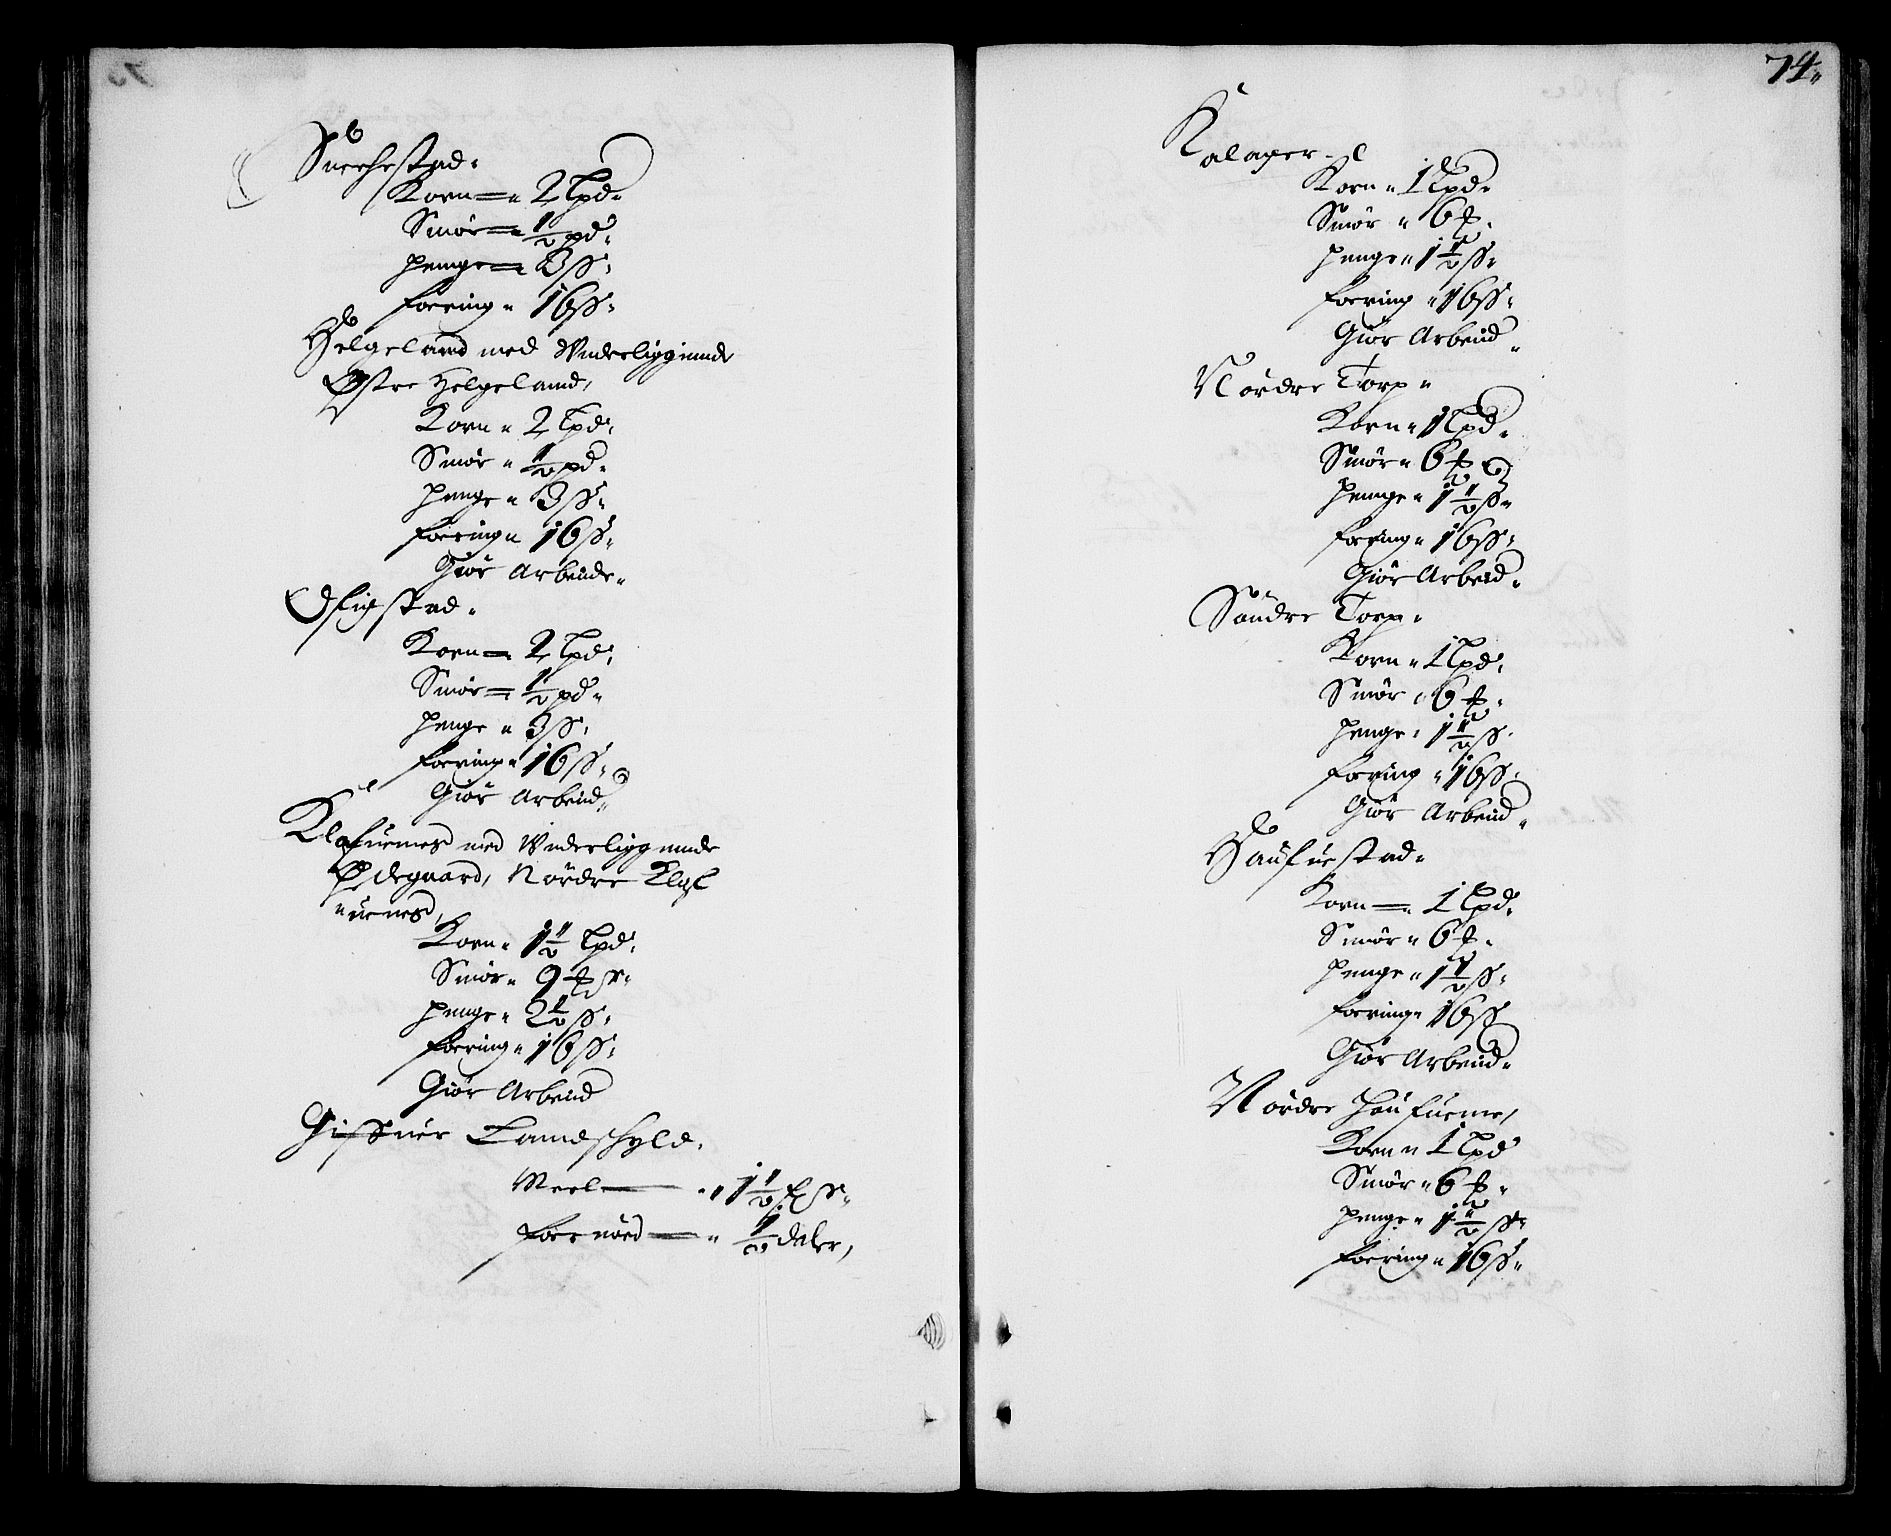 Sneehestad.
Korn 2 lpd.
Smør 1/2 pd.
penge 3 ss.
foering 16 ss.
Helgeland med Vnderliggende
Østre Helgeland,
Korn 2 lpd.
Smør 1/2 pd.
penge 3 ss.
foering 16 ss.
Giør Arbeide.
Korn 2 lpd.
Smør 1/2 pd.
penge 3 ss.
foering 16 ss.
Giør Arbeid.
med Vnderliggende
Ødegaard, Nørdre
Korn 1 1/2 lpd.
Smør 9
penge 2 1/2 ss.
foering 16 ss.
Giør Arbeid
Landschyld.
Meel 1 1/2
1/2 daler,
74.
Kalager
Korn 1 lpd.
Smør 6
penge 1 1/2 ss.
foering 16 ss.
Giør Arbeid.
Nørdre Torp
Korn 1 lpd.
Smør 6
penge 1 1/2 ss.
foering 16 ss.
Giør Arbeid.
Søndre Torp.
Korn 1 lpd.
Smør 6
penge 1 1/2 ss.
foering 16 ss.
Giør Arbeid.
Haufuestad.
Korn 1 lpd.
Smør 6
penge 1 1/2 ss.
foering 16 ss
Giør Arbeid.
Nørdre Haufueme,
Korn 1 lpd
Smør 6
penge 1 1/2 ss.
foering 16 ss.